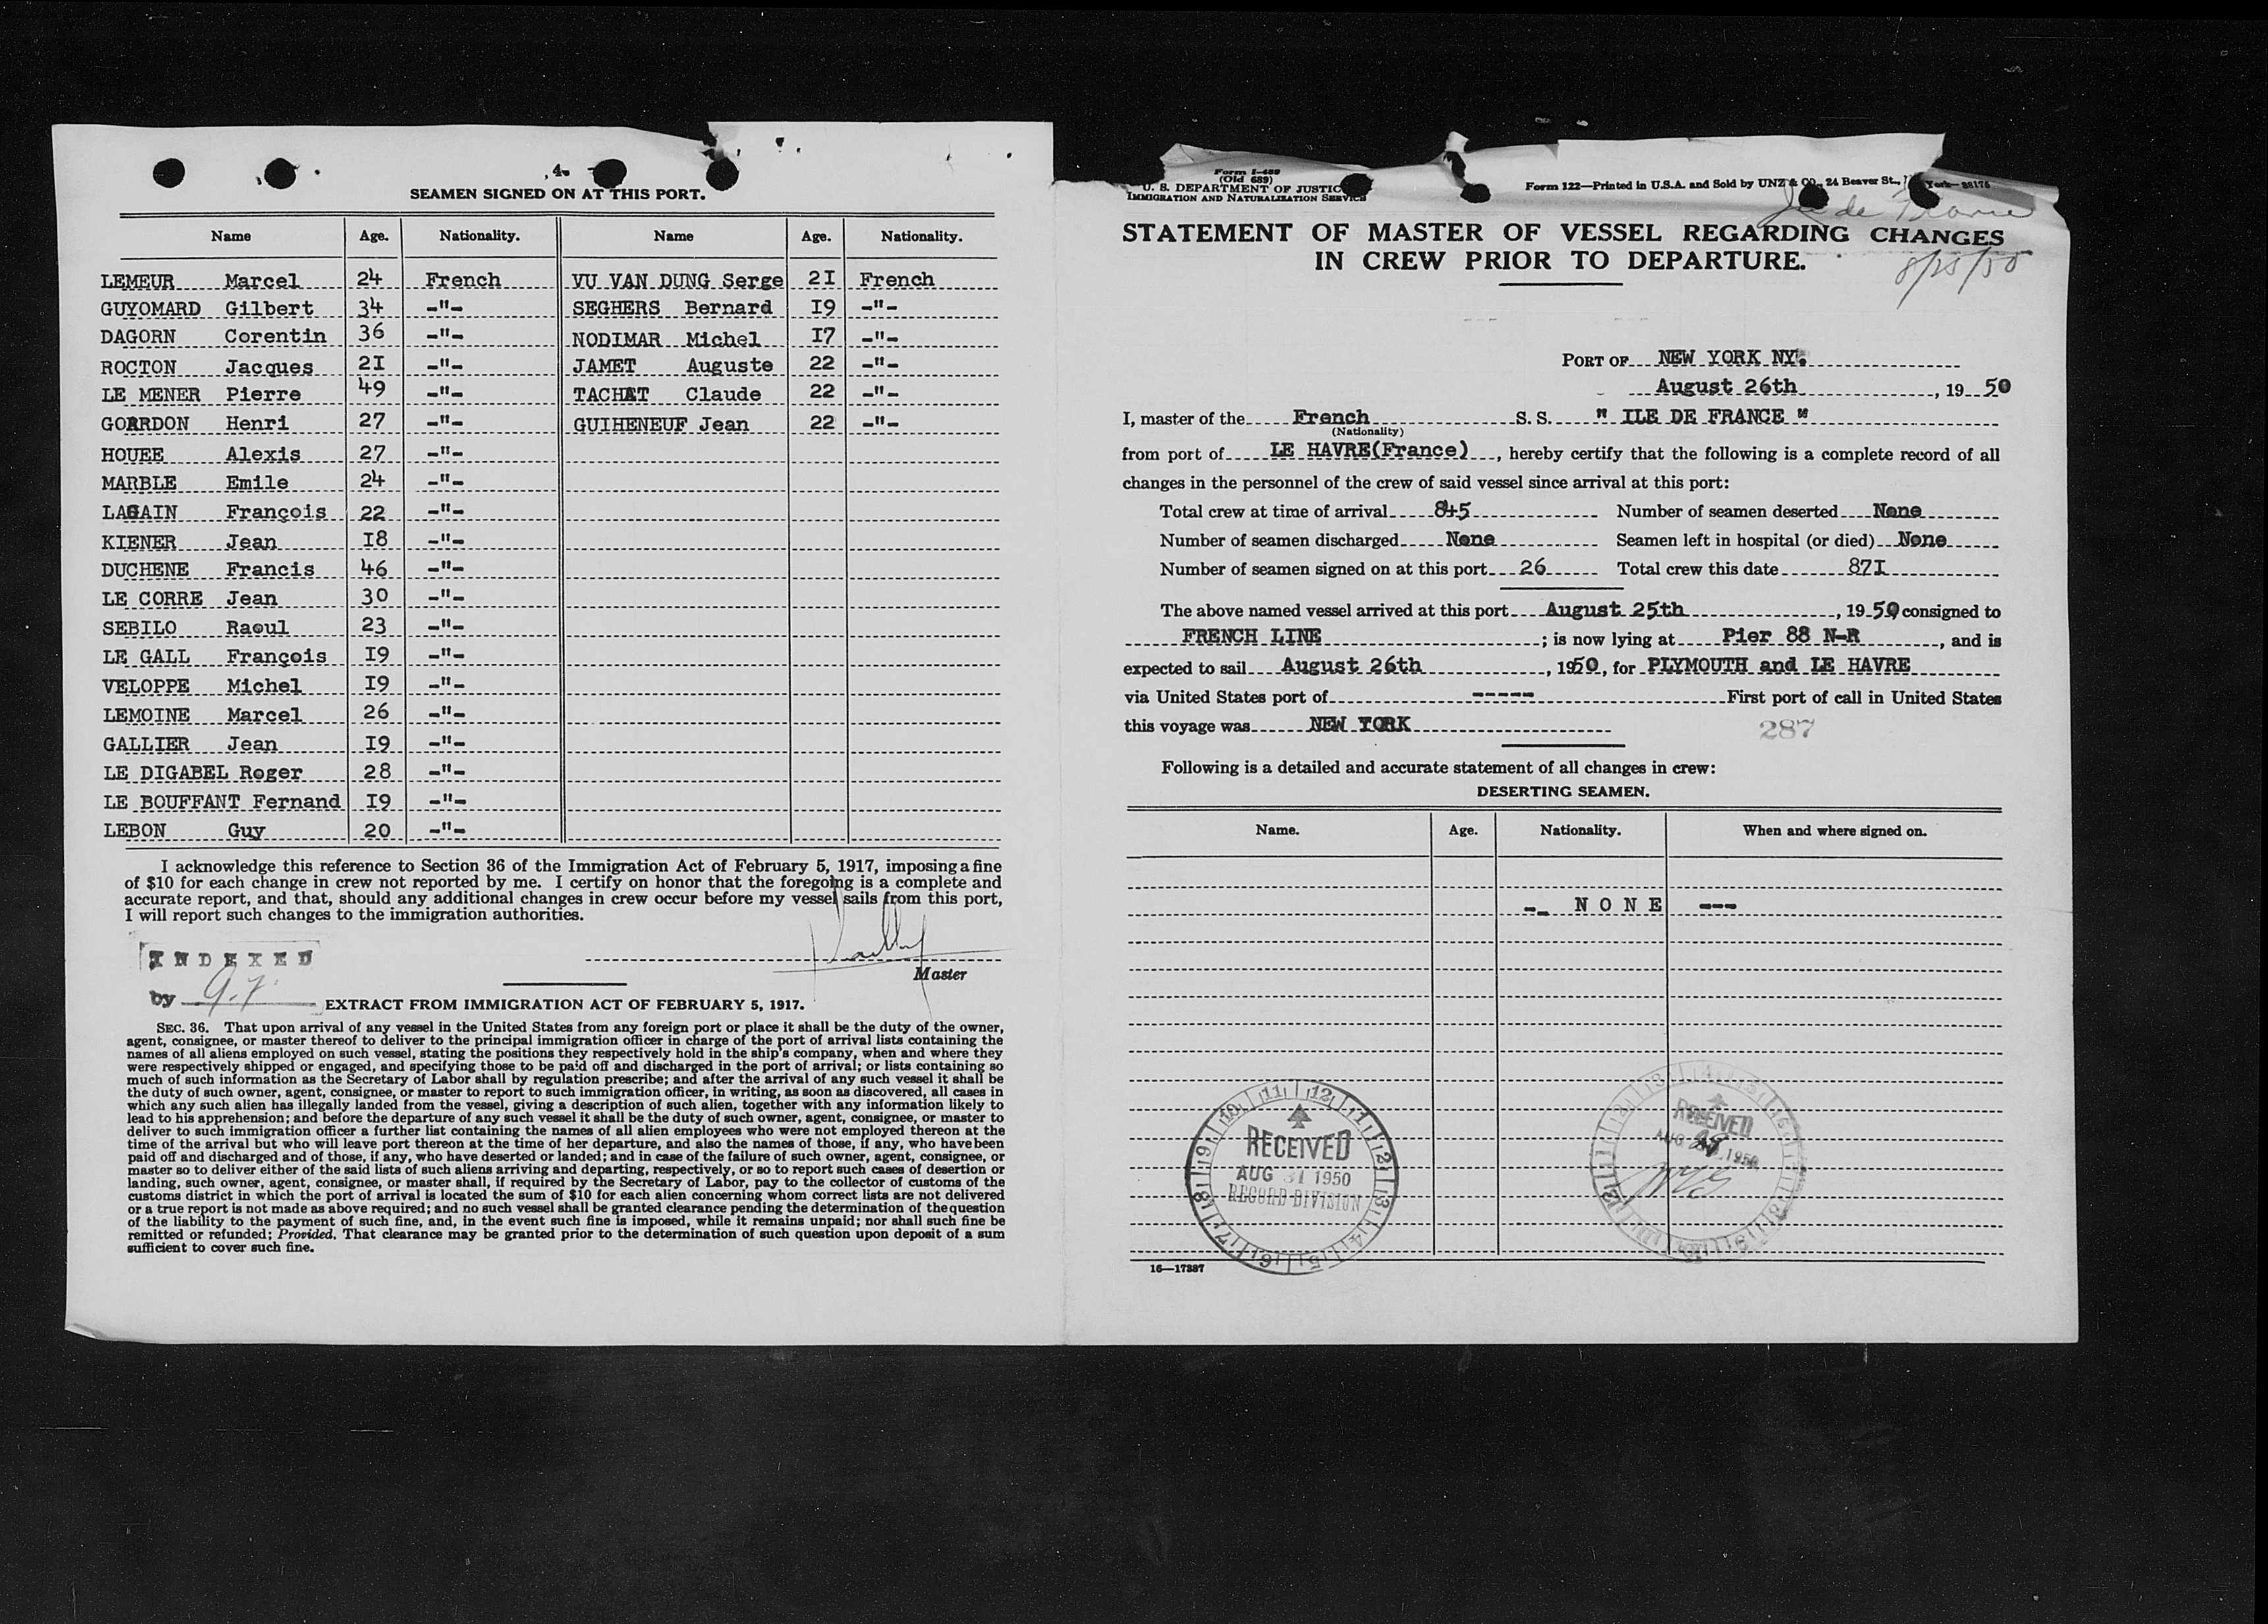 4.
SEAMEN SIGNED ON AT THIS PORT.
Name Age. Nationality. Name Age. Nationality.
LEMEUR Marcel 24 French VU VAN DUNG Serge 2I French
GUYOMARD Gilbert 34 -"- SEGHERS Bernard I9 -"-
DAGORN Corentin 36 -"- NODIMAR Michel I7 -"-
ROCTON Jacques 2I -"- JAMET Auguste 22 -"-
LE MENER Pierre 49 -"- TACHAT Claude 22 -"-
Henri 27 -"- GUIHENEUF Jean 22 -"-
HOUEE Alexis 27 -"-
MARBLE Emile 24 -"-
François 22 -"-
KIENER Jean I8 -"-
DUCHENE Francis 46 -"-
LE CORRE Jean 30 -"-
SEBILO Raoul 23 -"-
LE GALL François I9 -"-
VELOPPE Michel I9 -"-
LEMOINE Marcel 26 -"-
GALLIER Jean I9 -"-
LE DIGABEL Roger 28 -"-
LE BOUFFANT Fernand I9 -"-
LEBON Guy 20 -"-
I acknowledge this reference to Section 36 of the Immigration Act of February 5, 1917, imposing a fine
of $10 for each change in crew not reported by me. I certify on honor that the foregoing is a complete and
accurate report, and that, should any additional changes in crew occur before my vessel sails from this port,
I will report such changes to the immigration authorities.
INDEXED
Master
by
EXTRACT FROM IMMIGRATION ACT OF FEBRUARY 5, 1917.
SEC. 36. That upon arrival of any vessel in the United States from any foreign port or place it shall be the duty of the owner,
agent, consignee, or master thereof to deliver to the principal immigration officer in charge of the port of arrival lists containing the
names of all aliens employed on such vessel, stating the positions they respectively hold in the ship's company, when and where they
were respectively shipped or engaged, and specifying those to be paid off and discharged in the port of arrival; or lists containing so
much of such information as the Secretary of Labor shall by regulation prescribe; and after the arrival of any such vessel it shall be
the duty of such owner, agent, consignee, or master to report to such immigration officer, in writing, as soon as discovered, all cases in
which any such alien has illegally landed from the vessel, giving a description of such alien, together with any information likely to
lead to his apprehension; and before the departure of any such vessel it shall be the duty of such owner, agent, consignee, or master to
deliver to such immigration officer a further list containing the names of all alien employees who were not employed thereon at the
time of the arrival but who will leave port thereon at the time of her departure, and also the names of those, if any, who have been
paid off and discharged and of those, if any, who have deserted or landed; and in case of the failure of such owner, agent, consignee, or
master so to deliver either of the said lists of such aliens arriving and departing, respectively, or so to report such cases of desertion or
landing, such owner, agent, consignee, or master shall, if required by the Secretary of Labor, pay to the collector of customs of the
customs district in which the port of arrival is located the sum of $10 for each alien concerning whom correct lists are not delivered
or a true report is not made as above required; and no such vessel shall be granted clearance pending the determination of the question
of the liability to the payment of such fine, and, in the event such fine is imposed, while it remains unpaid; nor shall such fine be
remitted or refunded; Provided, That clearance may be granted prior to the determination of such question upon deposit of a sum
sufficient to cover such fine.
Form I-489
(Old 689)
U. S. DEPARTMENT OF JUSTIC
IMMIGRATION AND NATURALIZATION SERVICE
Form 122—Printed in U.S.A. and Sold by UNZ & CO., 24 Beaver St., York—28175
Ile de France
STATEMENT OF MASTER OF VESSEL REGARDING CHANGES
IN CREW PRIOR TO DEPARTURE.
8/25/50
PORT OF NEW YORK NY.
August 26th, 1950
I, master of the French S. S. " ILE DE FRANCE "
(Nationality)
from port of LE HAVRE(France), hereby certify that the following is a complete record of all
changes in the personnel of the crew of said vessel since arrival at this port:
Total crew at time of arrival 845 Number of seamen deserted None
Number of seamen discharged None Seamen left in hospital (or died) None
Number of seamen signed on at this port 26 Total crew this date 87I
The above named vessel arrived at this port August 25th, 1950 consigned to
FRENCH LINE; is now lying at Pier 88 N-R, and is
expected to sail August 26th, 1950, for PLYMOUTH and LE HAVRE
via United States port of ----- First port of call in United States
this voyage was NEW YORK
287
Following is a detailed and accurate statement of all changes in crew:
DESERTING SEAMEN.
Name. Age. Nationality. When and where signed on.
-- N O N E ---
RECEIVED
AUG 31 1950
RECORD DIVISION
RECEIVED
AUG 1950
16—17387